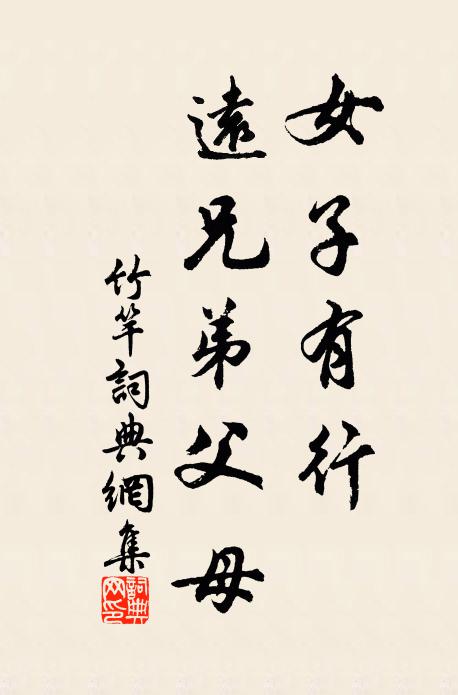 女子有行
遠兄弟父母
竹竿詞典網集
詞典网印